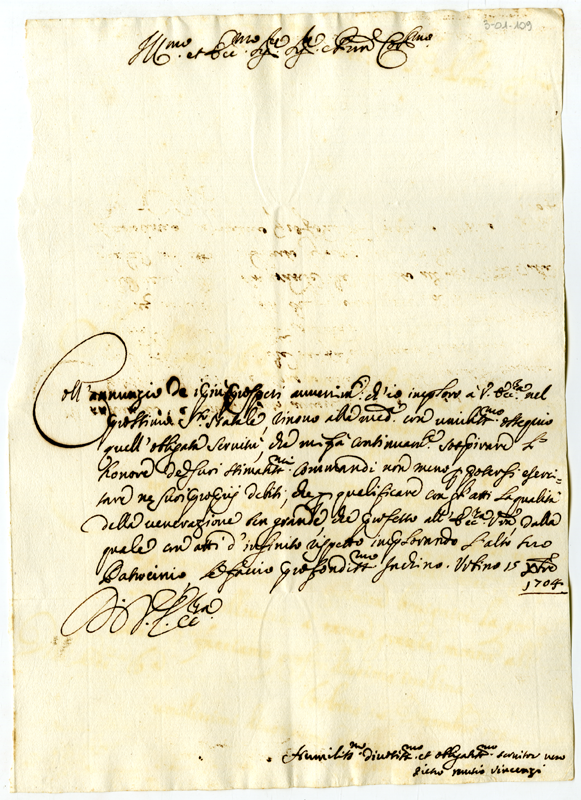 3-01-109
Ill.mo et Ecc.mo Sig.r Sig.r e Pron Col.mo
Coll'annunzio de i più prosperi avvenim.ti ch'io imploro à V. Ecc.za nel
prossimo S. Natale, rinovo alla med.a con umiliss.mo ossequio
quell'obligata servitù, che mi fà continuam.te sospirare l'
honore de suoi stimatiss.mi Commandi non meno p potersi eserci=
tare ne suoi proprij debiti, che p qualificare con gl'atti la qualità
della venerazione ben grande che professo all'Ecc.za V.ra dalla
quale con atti d'infinito rispetto implorando l'alto suo
Patrocinio, le faccio profondiss.mo inchino. Urbino 15 Xbre
1704
D. V. Ecc.za
Humiliss.mo Divotiss.mo et obligatiss.mo servitor vero
Pietro Mutio Vincenzi